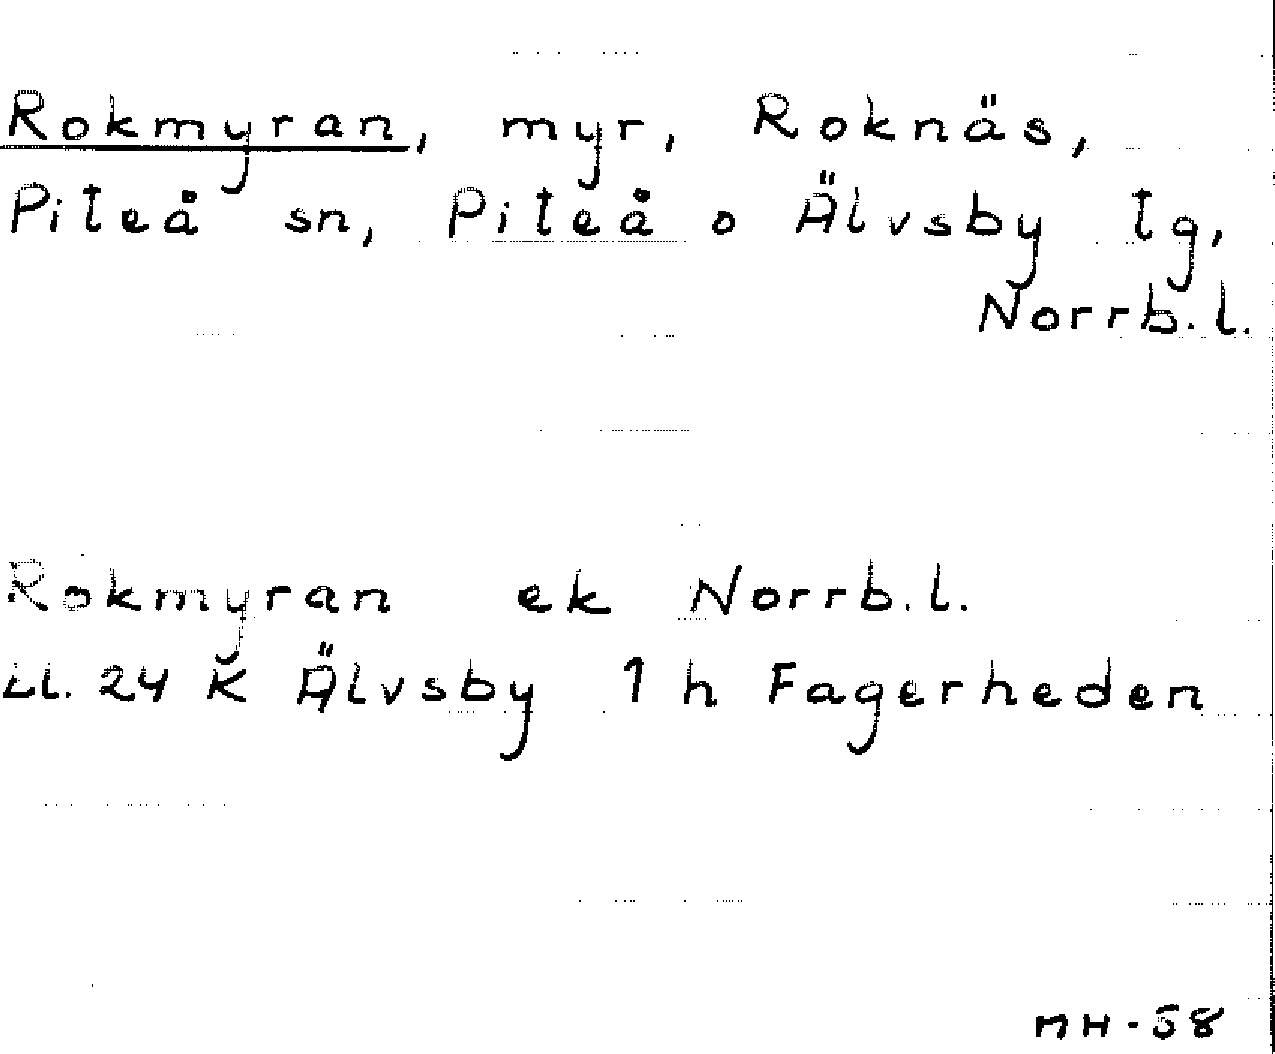 Rokmyran, myr, Roknäs,
Piteå sn, Piteå o Älvsby tg,
Norrb.l.
Rokmyran ek Norrb.l.
bl. 24 K Älvsby 1 h Fagerheden
MH-58